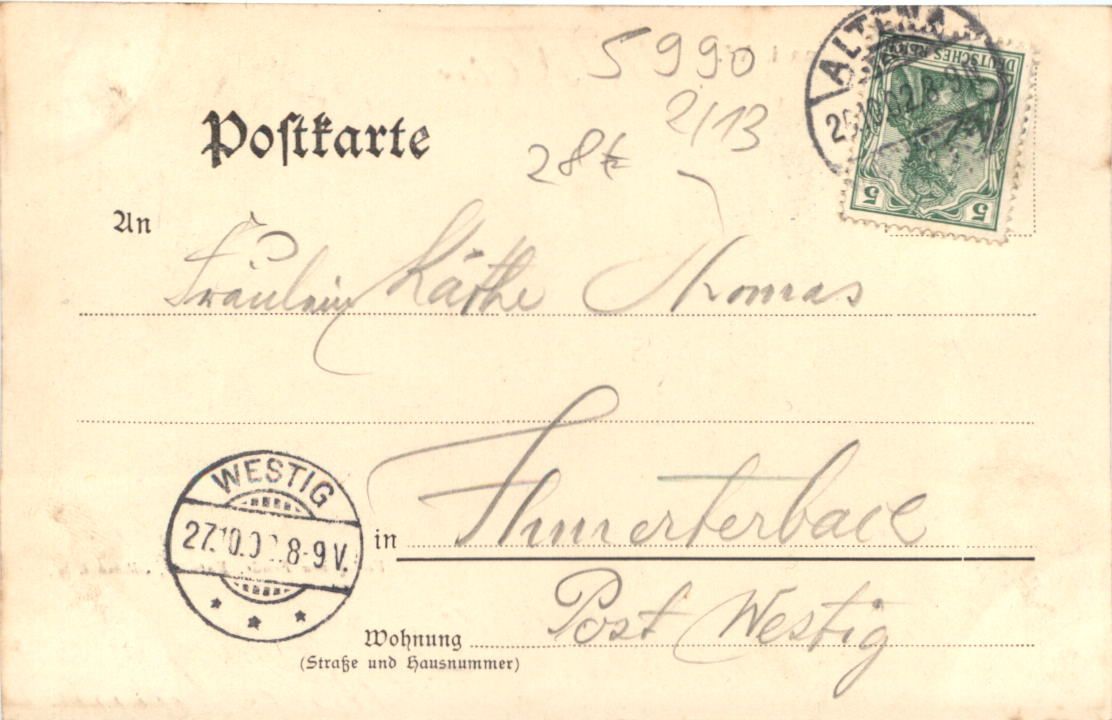 5990
2/13
28
ALTENA
26.10.02.8-9N
DEUTSCHES REICH
5 5
Postkarte
An
Fräulein Käthe Thomas
WESTIG
27.10.02.8-9V.
in Ihmerterbach
Post Westig
Wohnung
(Straße und Hausnummer)